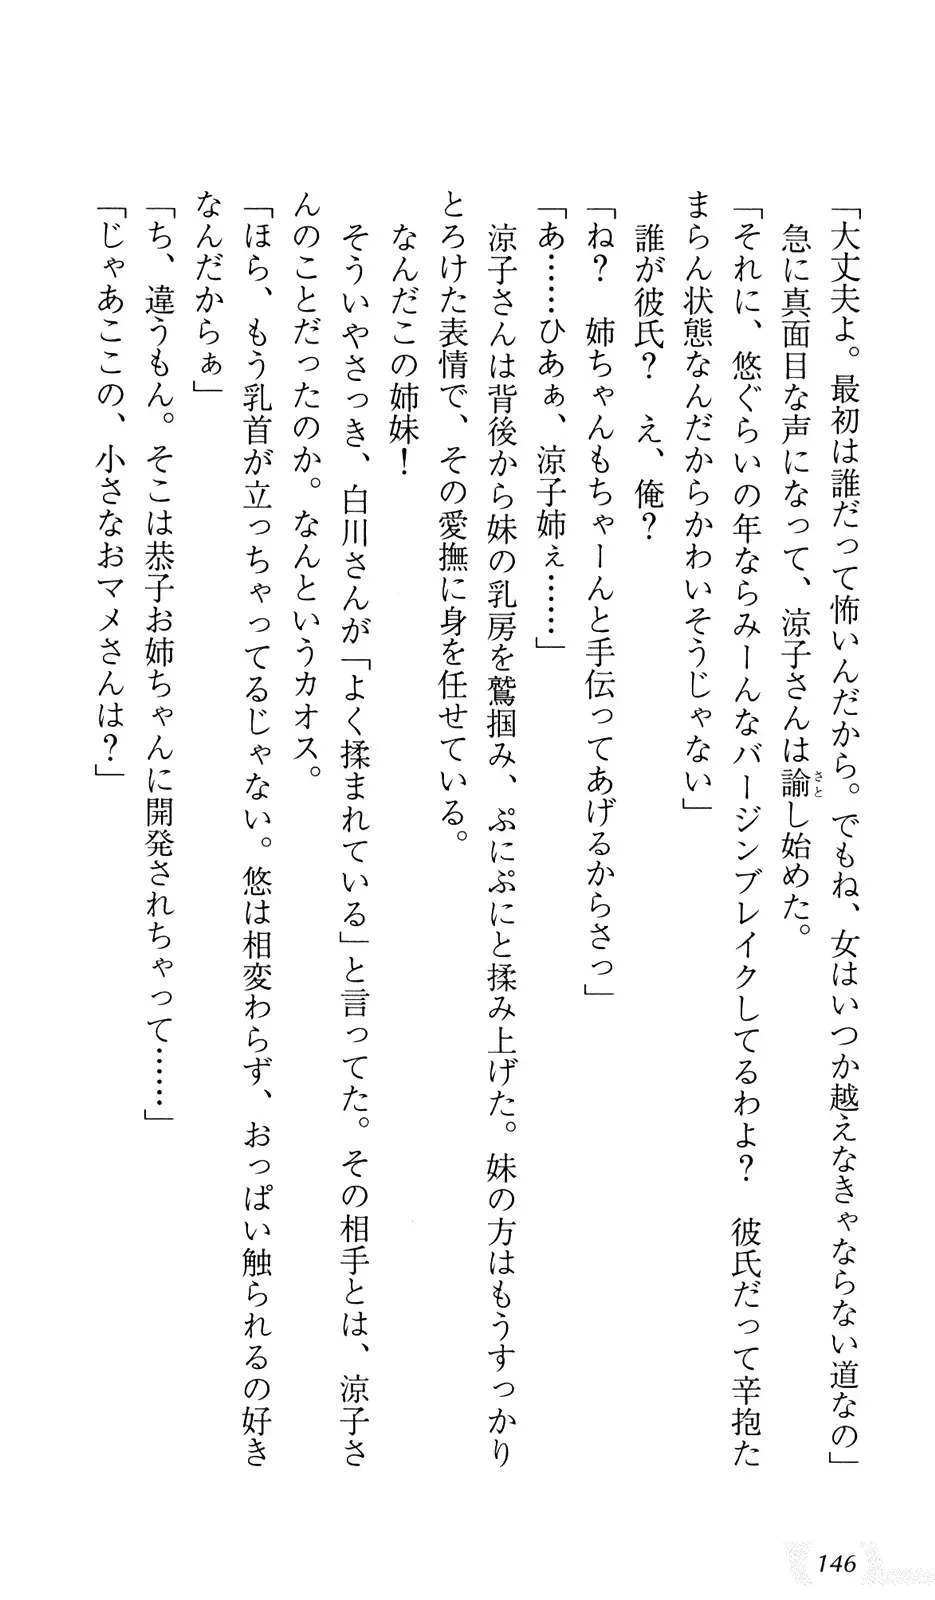 「大丈夫よ。最初は誰だって怖いんだから。でもね、女はいつか越えなきゃならない道なの」
急に真面目な声になって、涼子さんは諭し始めた。
さと
「それに、悠ぐらいの年ならみーんなバージンブレイクしてるわよ？　彼氏だって辛抱た
まらん状態なんだからかわいそうじゃない」
誰が彼氏？　え、俺？
「ね？　姉ちゃんもちゃーんと手伝ってあげるからさっ」
「あ……ひあぁ、涼子姉ぇ……」
涼子さんは背後から妹の乳房を鷲掴み、ぷにぷにと揉み上げた。妹の方はもうすっかり
とろけた表情で、その愛撫に身を任せている。
なんだこの姉妹！
そういやさっき、白川さんが「よく揉まれている」と言ってた。その相手とは、涼子さ
んのことだったのか。なんというカオス。
「ほら、もう乳首が立っちゃってるじゃない。悠は相変わらず、おっぱい触られるの好き
なんだからぁ」
「ち、違うもん。そこは恭子お姉ちゃんに開発されちゃって……」
「じゃあここの、小さなおマメさんは？」
146